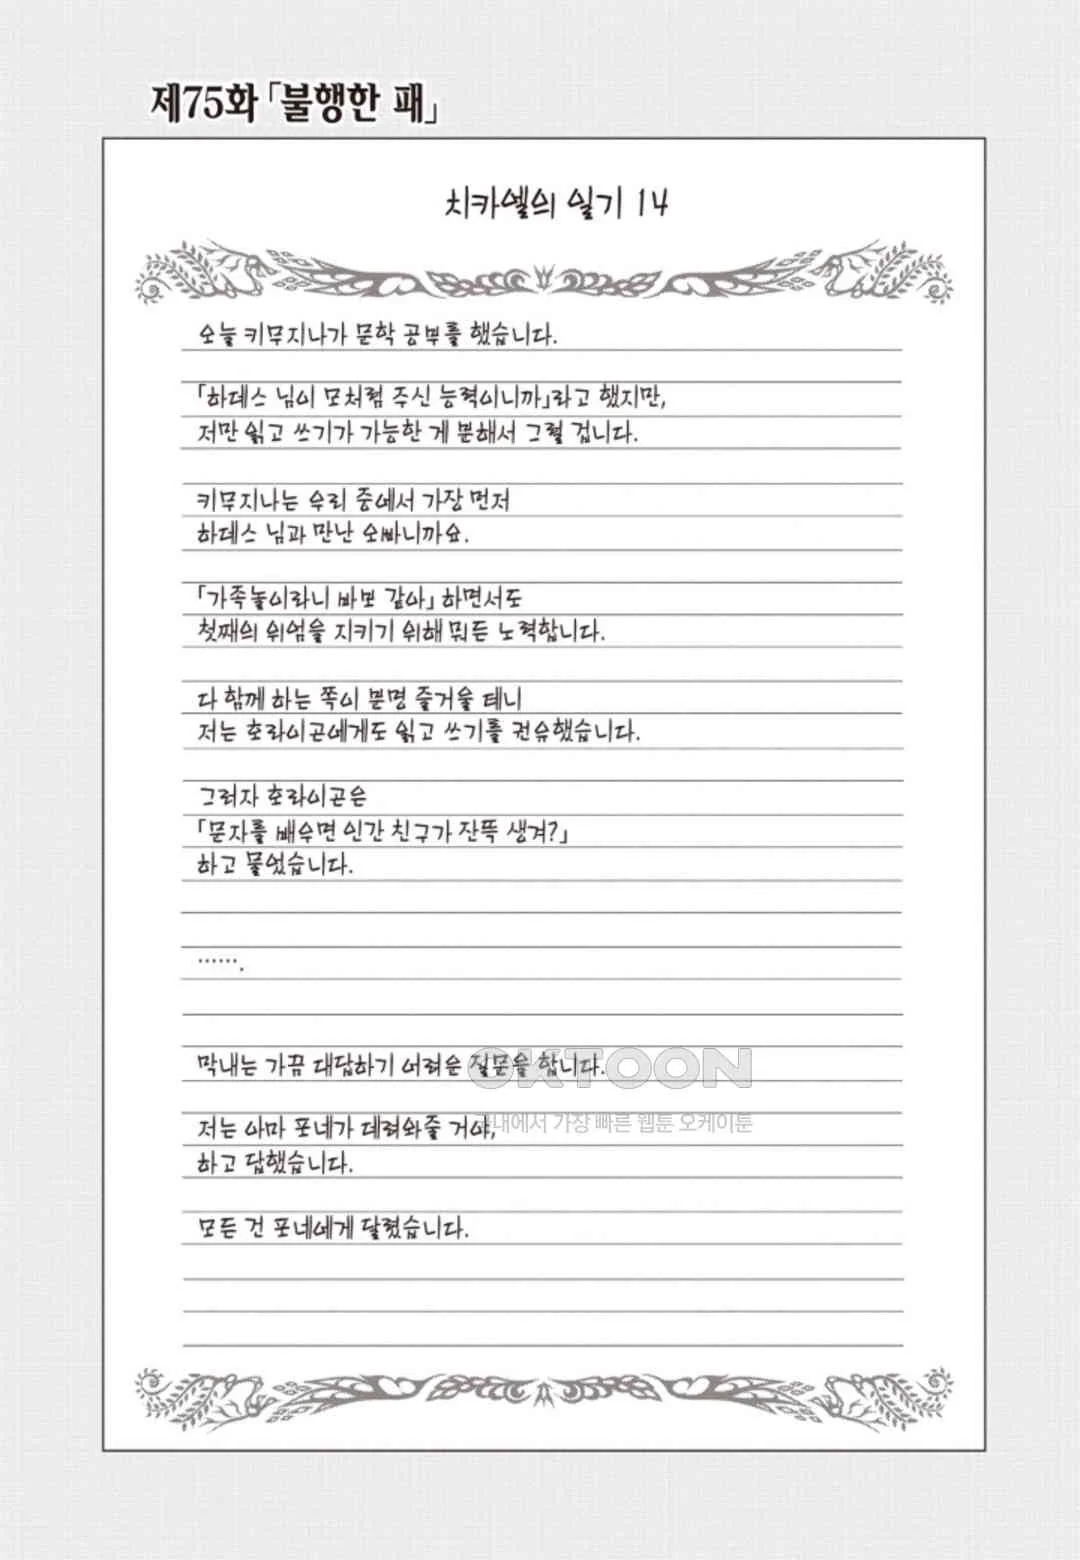 제75화 「불행한 패」
치카엘의 일기 14
오늘 키무지나가 문학 공부를 했습니다.
「하데스 님이 모처럼 주신 능력이니까」라고 했지만,
저만 읽고 쓰기가 가능한 게 분해서 그럴 겁니다.
키무지나는 우리 중에서 가장 먼저
하데스 님과 만난 오빠니까요.
「가족놀이라니 바보 같아」 하면서도
첫째의 위엄을 지키기 위해 뭐든 노력합니다.
다 함께 하는 쪽이 분명 즐거울 테니
저는 호라이곤에게도 읽고 쓰기를 권유했습니다.
그러자 호라이곤은
「문자를 배우면 인간 친구가 잔뜩 생겨?」
하고 물었습니다.
…….
막내는 가끔 대답하기 어려운 질문을 합니다.
OKTOON
국내에서 가장 빠른 웹툰 오케이툰
저는 아마 포네가 데려와줄 거야,
하고 답했습니다.
모든 건 포네에게 달렸습니다.